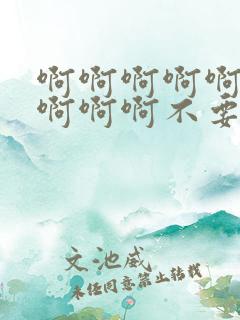 啊啊啊啊啊
啊啊啊不要
文池咸
未经同意禁止转载